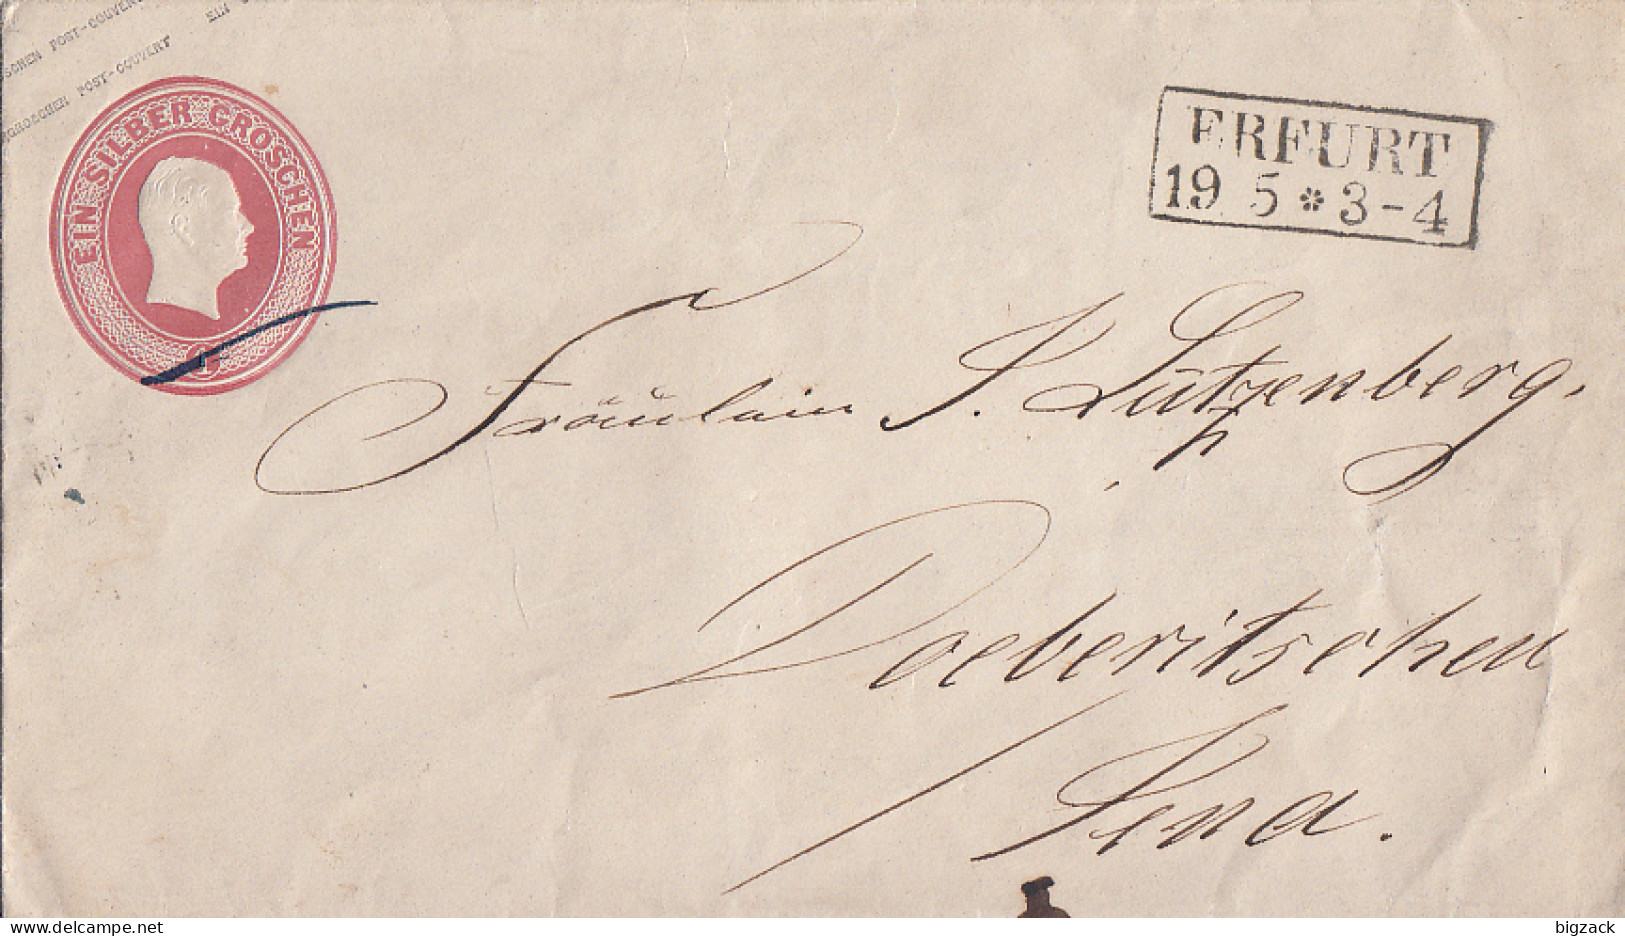 SCHEN POST-COUVERT
EIN
RGROSCHEN POST-COUVERT
EIN SILBER GROSCHEN
1
ERFURT
19 5 * 3-4
Fräulein J. Lützenberg.
Doeberitschen
/ Jena.
delcampe.net
bigzack